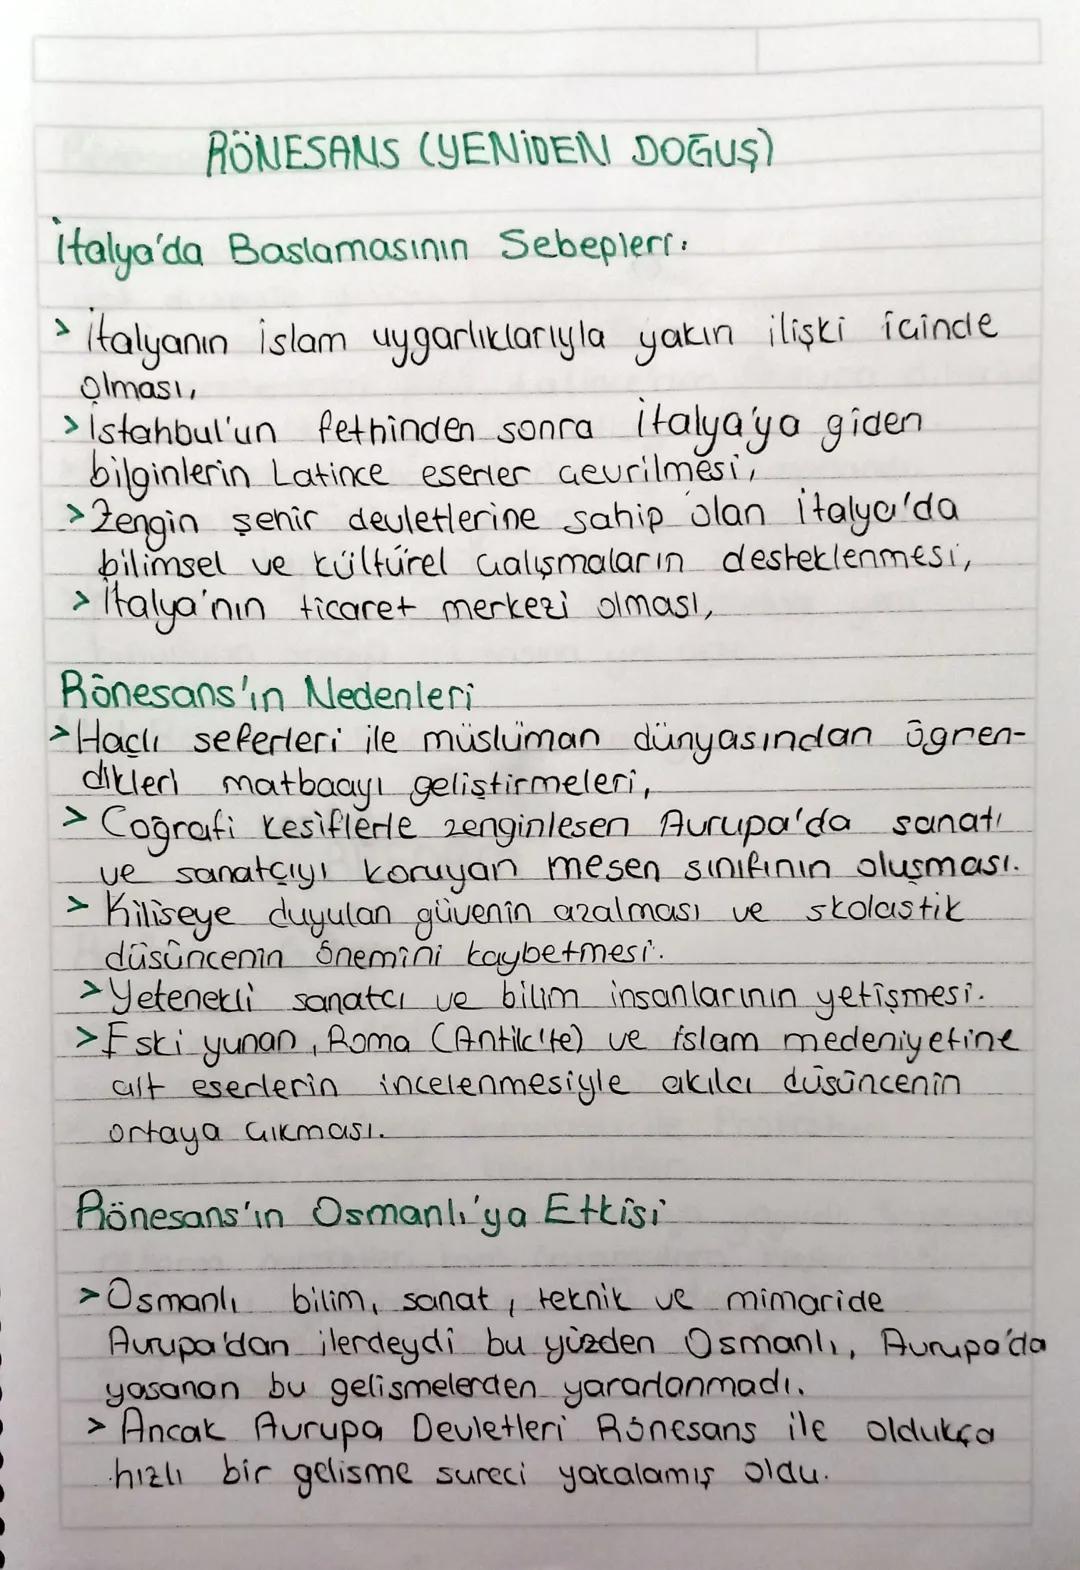 RÖNESANS (YENİDEN DOĞUŞ)
İtalya'da Baslamasının Sebepleri:
> İtalyanın islam uygarlıklarıyla yakın ilişki icinde
olması,
> İstanbul'un fethinden sonra İtalya'ya giden
bilginlerin Latince eserler cevrilmesi,
> Zengin şehir devletlerine sahip olan İtalya'da
bilimsel ve kültürel calışmaların desteklenmesi,
> İtalya'nın ticaret merkezi olması,
Rönesans'ın Nedenleri
> Haçlı seferleri ile müslüman dünyasından ögren-
dikleri matbaayı geliştirmeleri,
> Coğrafi kesiflerle zenginlesen Avrupa'da sanatı
ve sanatçıyı koruyan mesen sınıfının oluşması.
> Kiliseye duyulan güvenin azalması ve skolastik
düsüncenin önemini kaybetmesi.
> Yetenekli sanatcı ve bilim insanlarının yetişmesi.
> Eski yunan, Roma (Antik'te) ve islam medeniyetine
ait eserlerin incelenmesiyle akılcı düsüncenin
ortaya cıkması.
Rönesans'ın Osmanlı'ya Etkisi
> Osmanlı bilim, sanat, teknik ve mimaride
Avrupa'dan ilerdeydi bu yüzden Osmanlı, Avrupa'da
yasanan bu gelismelerden yararlanmadı.
> Ancak Avrupa Devletleri Rönesans ile oldukça
hızlı bir gelisme sureci yakalamış oldu.